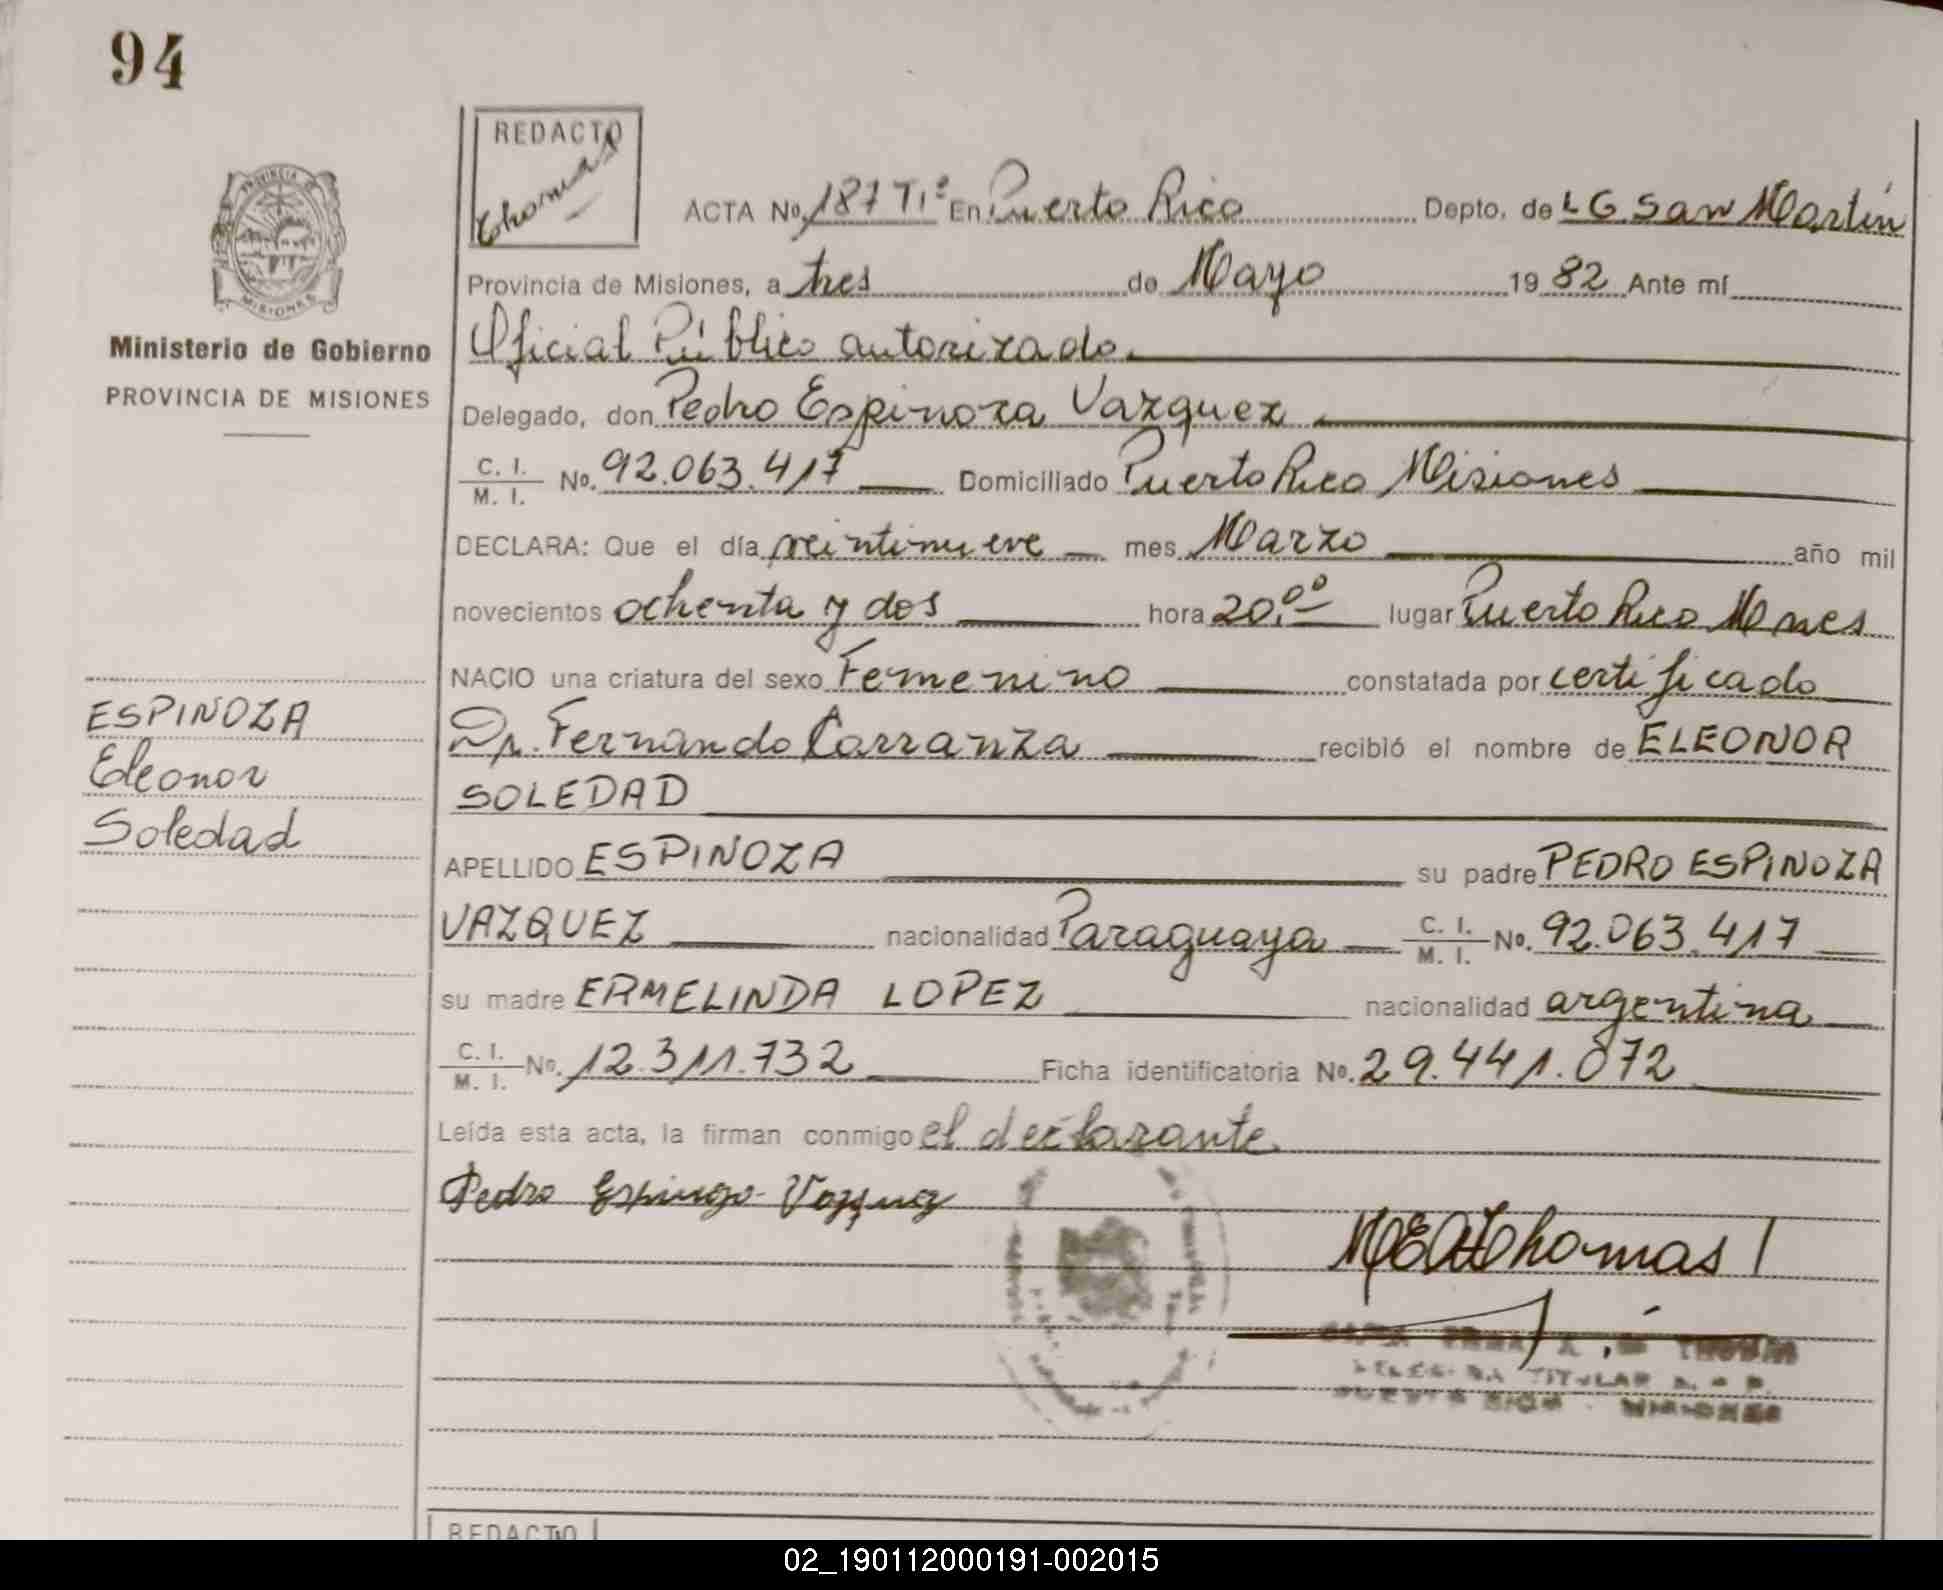 94
REDACTO
Thomas
PROVINCIA DE
MISIONES
Ministerio de Gobierno
PROVINCIA DE MISIONES
ACTA No. 187 T1º En Puerto Rico Depto. de L G San Martín
Provincia de Misiones, a tres de Mayo 1982 Ante mí
Oficial Público autorizado.
Delegado, don Pedro Espinoza Vazquez
C. I. / M. I. No. 92.063.417 Domiciliado Puerto Rico Misiones
DECLARA: Que el día veintinueve mes Marzo año mil
novecientos ochenta y dos hora 20.00 lugar Puerto Rico Mnes
NACIO una criatura del sexo Femenino constatada por certificado
Dr. Fernando Carranza recibió el nombre de ELEONOR
SOLEDAD
ESPINOZA
Eleonor
Soledad
APELLIDO ESPINOZA su padre PEDRO ESPINOZA
VAZQUEZ nacionalidad Paraguaya C. I. / M. I. No. 92.063.417
su madre ERMELINDA LOPEZ nacionalidad argentina
C. I. / M. I. No. 12.311.732 Ficha identificatoria No. 29.441.072
Leída esta acta, la firman conmigo el declarante
Pedro Espinoza Vazquez
Thomas
TITULAR
PUERTO RICO - MISIONES
REDACTO
02_190112000191-002015